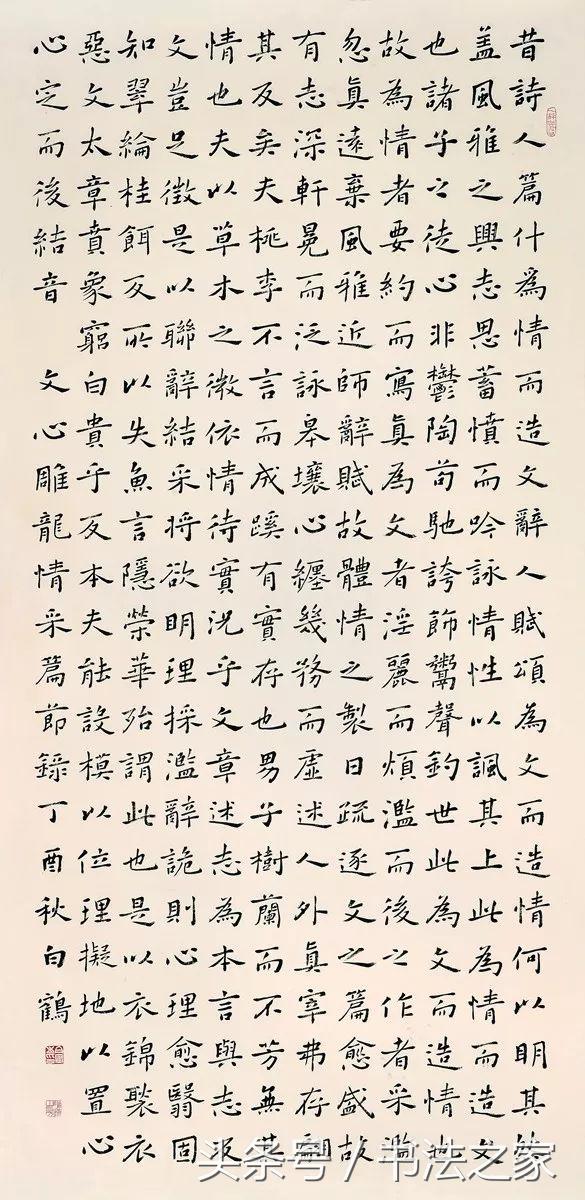 昔詩人篇什為情而造文辭人賦頌為文而造情何以明其然
盖風雅之興志思蓄憤而吟詠情性以諷其上此為情而造文
也諸子之徒心非鬱陶苟馳誇飾鬻聲釣世此為文而造情也
故為情者要約而寫真為文者淫麗而煩濫而後之作者采濫
忽真遠棄風雅近師辭賦故體情之製日疏逐文之篇愈盛故
有志深軒冕而泛詠皋壤心纏幾務而虛述人外真宰弗存翩
其反矣夫桃李不言而成蹊有實存也男子樹蘭而不芳無其
情也夫以草木之微依情待實況乎文章述志為本言與志反
文豈足徵是以聯辭結采將欲明理採濫辭詭則心理愈翳固
知翠綸桂餌反所以失魚言隱榮華殆謂此也是以衣錦褧衣
惡文太章賁象窮白貴乎反本夫能設模以位理擬地以置心
心定而後結音 文心雕龍情采篇節錄丁酉秋白鶴
头条号 / 书法之家